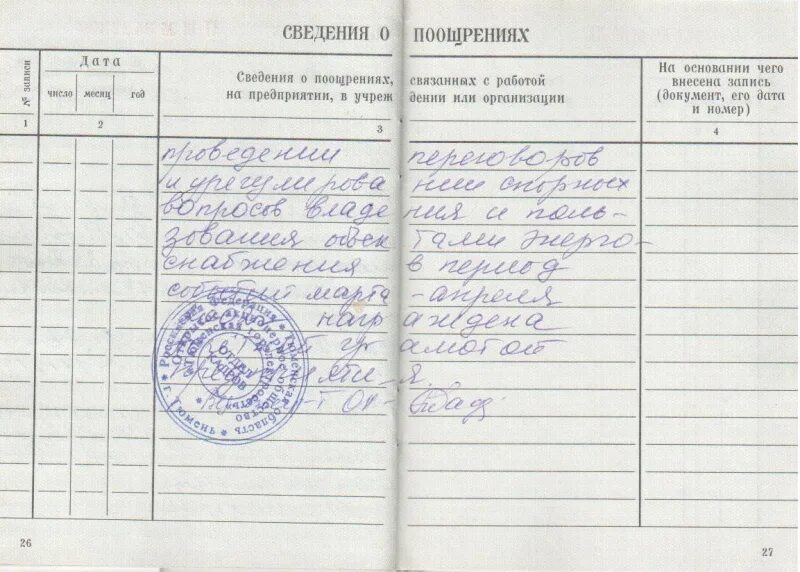 СВЕДЕНИЯ О ПООЩРЕНИЯХ
№ записи
Дата
число месяц год
Сведения о поощрениях, связанных с работой
на предприятии, в учреждении или организации
На основании чего
внесена запись
(документ, его дата
и номер)
1 2 3 4
проведении переговоров
и урегулировании спорных
вопросов владения и поль-
зования объектами энерго-
снабжения в период
событий марта-апреля
награждена
грамотой
предприятия.
Российская Федерация * Тюменская область * г. Тюмень *
Открытое акционерное общество
"Тюменская горэлектросеть"
ОТДЕЛ
КАДРОВ
26
27